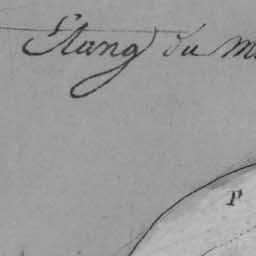 Etang du
P